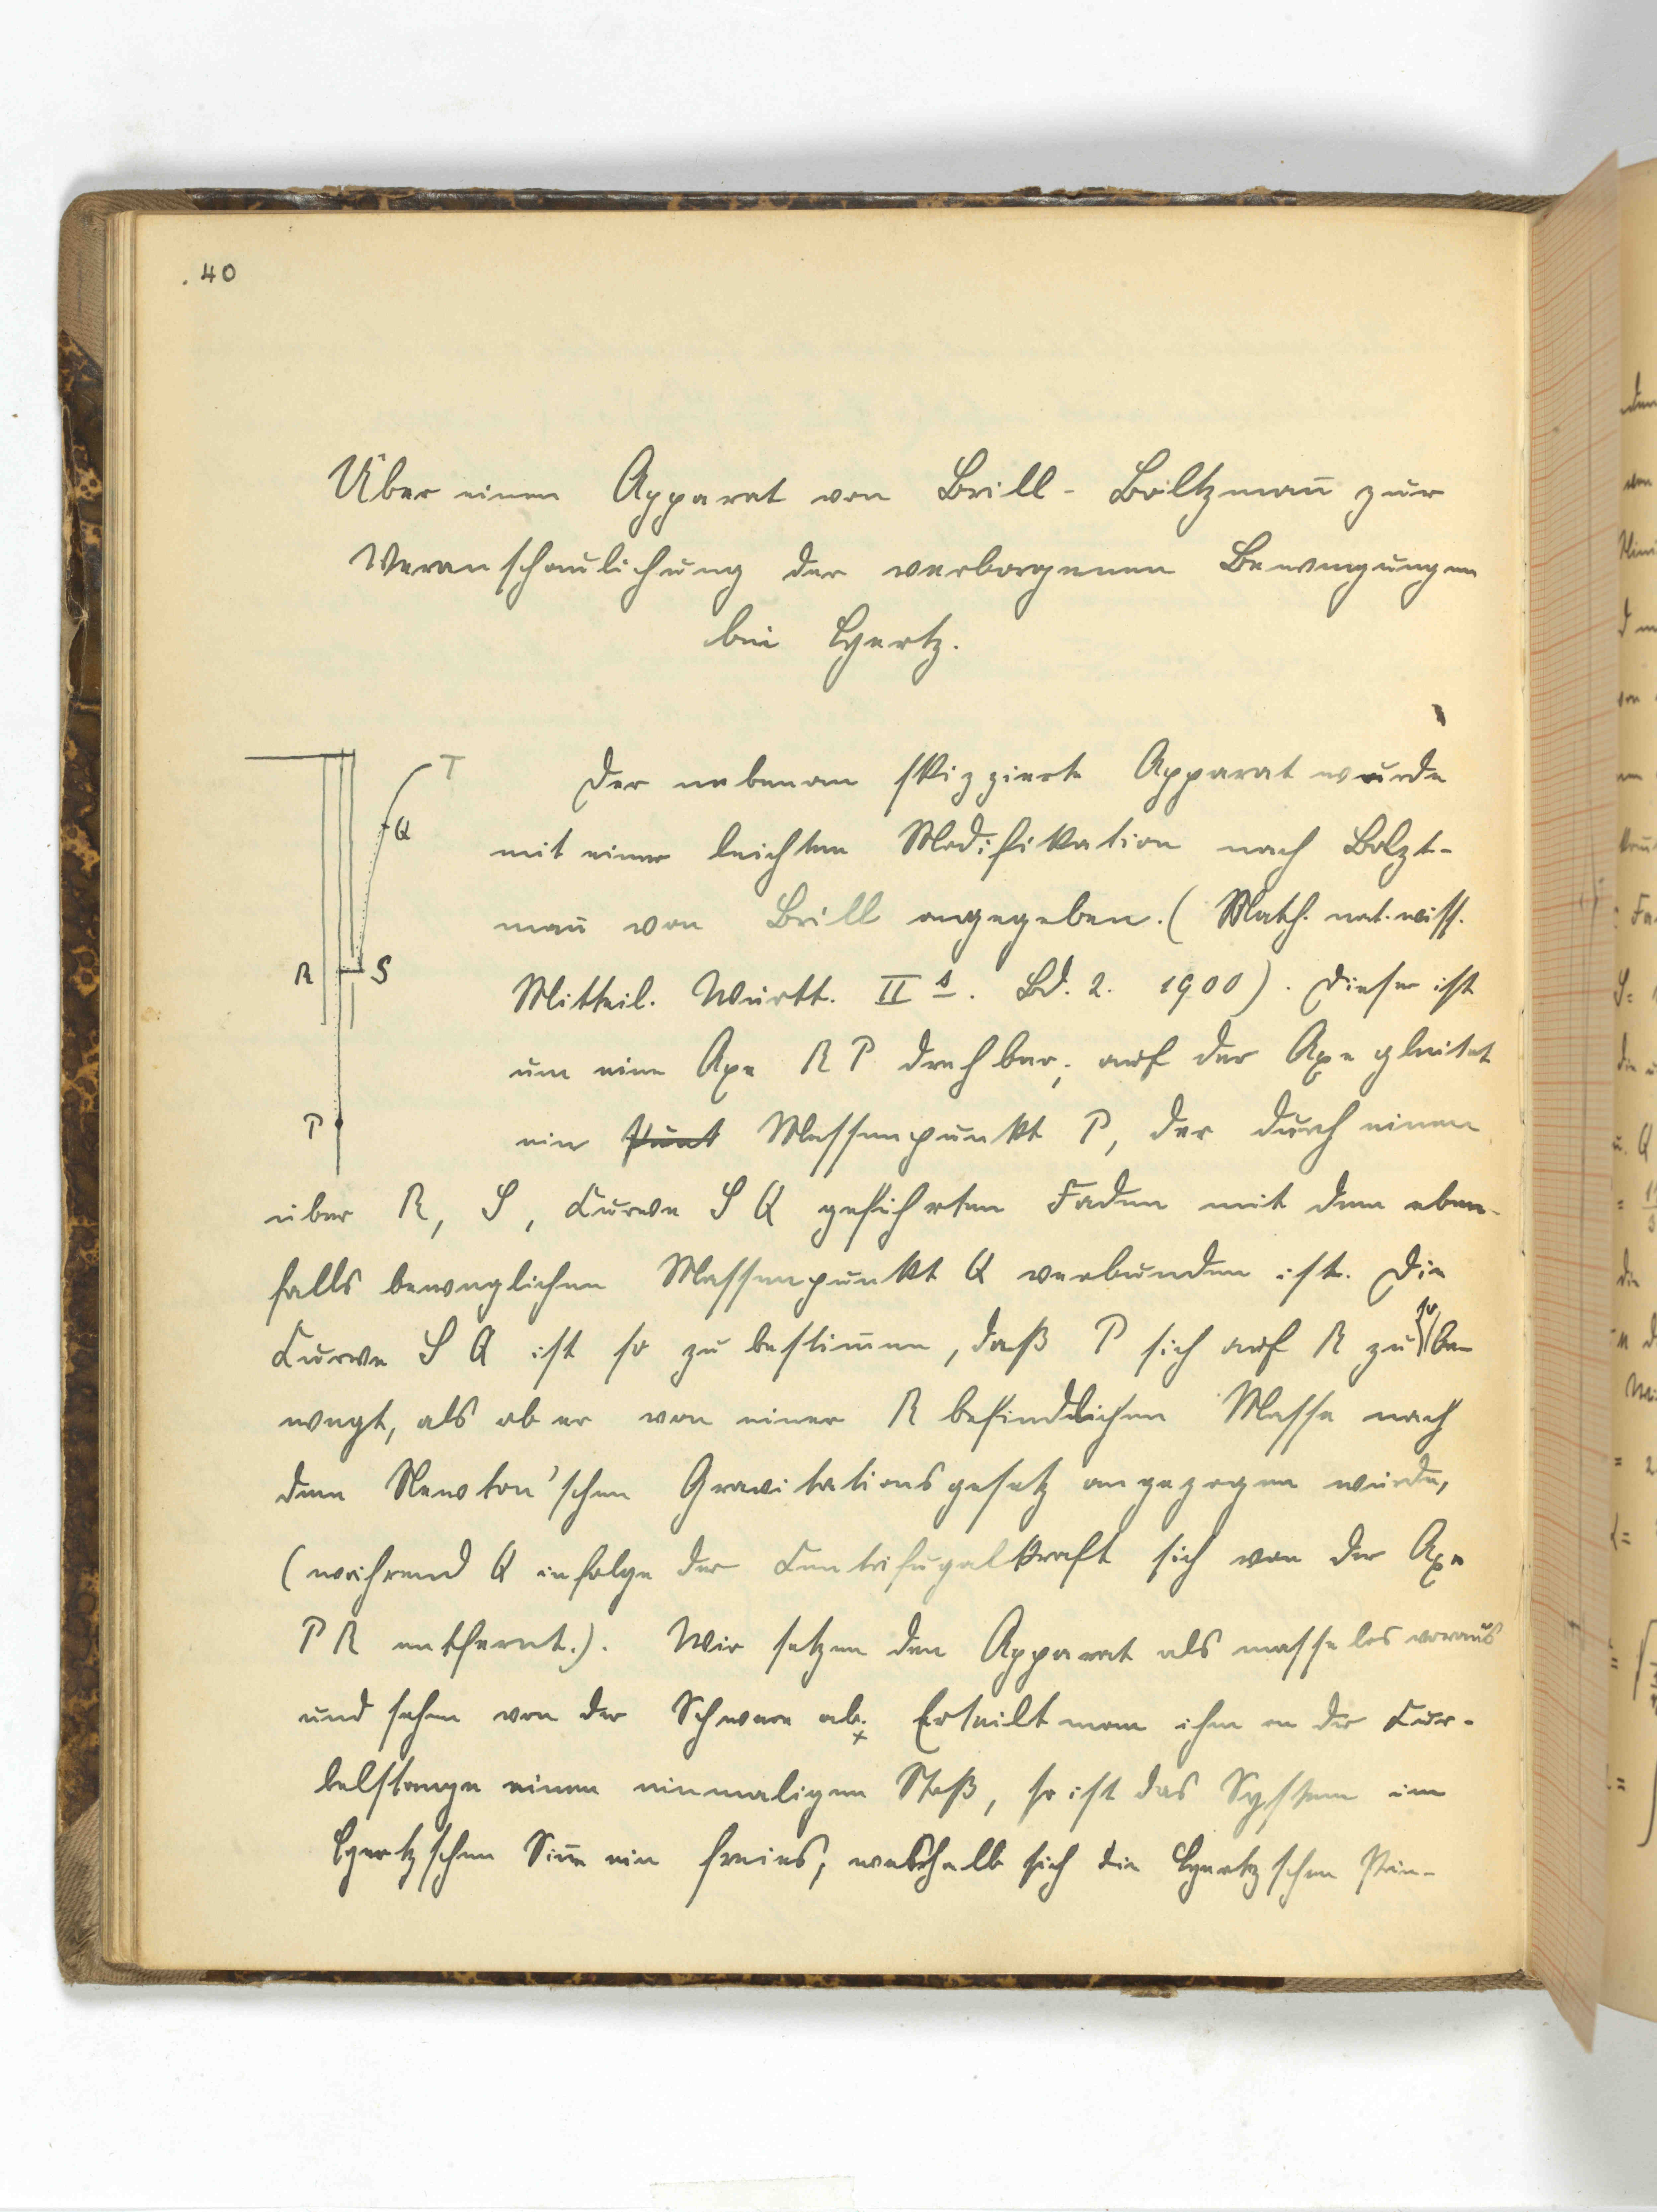 40
Über einen Apparat von Brill-Boltzman̅ zur
Veranschaulichung der verborgenen Bewegungen
bei Hertz.
Der nebenan skizzierte Apparat wurde
mit einer leichten Modifikation nach Bolzt-
man̅ von Brill angegeben. (Math. nat. wiss.
Mitteil. Württ. II s. Bd. 2. 1900). Dieser ist
um eine Axe R P drehbar; auf der Axe gleitet
ein Punt Massenpunkt P, der durch einen
über R, S, Curve S Q geführten Faden mit dem eben-
falls beweglichen Massenpunkt Q verbunden ist. Die
Curve S Q ist so zu bestim̅en, daß P sich auf R zu so be-
wegt, als ob er von einer R befindlichen Masse nach
dem Newton'schen Gravitationsgesetz angezogen würde,
(während Q infolge der Centrifugalkraft sich von der Axe
P R entfernt.). Wir setzen den Apparat als masselos voraus
und sehen von der Schwere ab. Erteilt man ihm an der Kur-
belstange einen einmaligen Stoß, so ist das System im
Hertzschen Sin̅e ein freies, weshalb sich die Hertzschen Prin-
T
Q
R
S
P